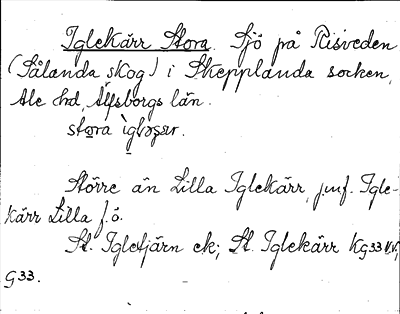 Iglekärr Stora. Sjö på Risveden
(Sålanda skog) i Skepplanda socken,
Ale hd, Älfsborgs län.
stora
Större än Lilla Iglekärr, jmf. Igle-
kärr Lilla f.ö.
St. Igletjärn ek; St. Iglekärr KG33
G33.